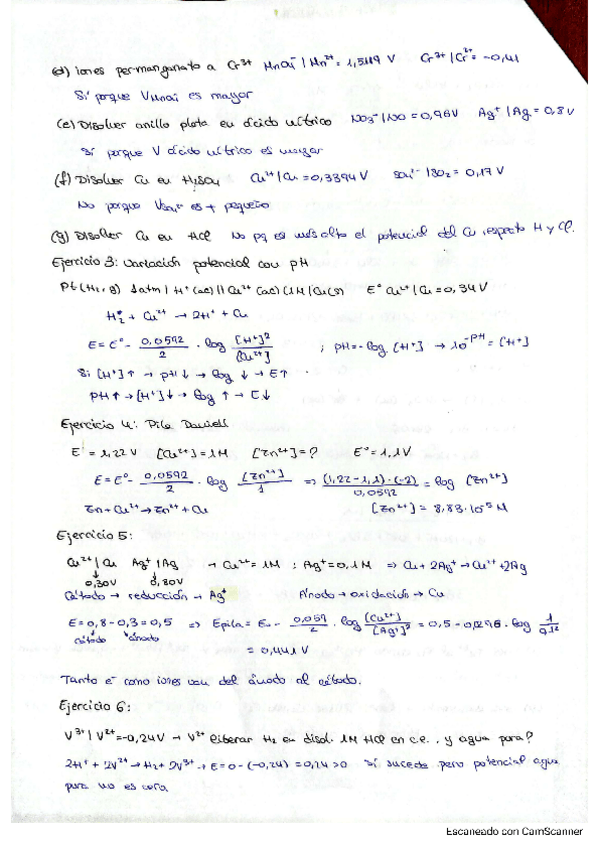 (d) iones permanganato a Cr³⁺ MnO₄⁻ | Mn²⁺ = 1,5119 V Cr³⁺ | Cr²⁺ = -0,41
Sí porque V MnO₄⁻ es mayor
(e) Disolver anillo plata en ácido nítrico NO₃⁻ | NO = 0,96 V Ag⁺ | Ag = 0,8 V
Sí porque V ácido nítrico es mayor
(f) Disolver Cu en H₂SO₄ Cu²⁺ | Cu = 0,3394 V SO₄²⁻ | SO₂ = 0,17 V
No porque V SO₄²⁻ es + pequeño
(g) Disolver Cu en HCl No pq es más alto el potencial del Cu respecto H y Cl.
Ejercicio 3: variación potencial con pH
Pt (H₂, g) 1 atm | H⁺ (ac) || Cu²⁺ (ac) (1M | Cu(s) E° Cu²⁺ | Cu = 0,34 V
H₂ + Cu²⁺ → 2H⁺ + Cu
E = E° - 0,0592/2 · log [H⁺]²/[Cu²⁺] ; pH = - log [H⁺] → 10^-pH = [H⁺]
Si [H⁺] ↑ → pH ↓ → log ↓ → E ↑
pH ↑ → [H⁺] ↓ → log ↑ → E ↓
Ejercicio 4: Pila Daniell
E = 1,22 V [Cu²⁺] = 1M [Zn²⁺] = ? E° = 1,1 V
E = E° - 0,0592/2 · log [Zn²⁺]/1 ⇒ (1,22 - 1,1) · (-2)/0,0592 = log [Zn²⁺]
Zn + Cu²⁺ → Zn²⁺ + Cu [Zn²⁺] = 8,83 · 10⁻⁵ M
Ejercicio 5:
Cu²⁺ | Cu Ag⁺ | Ag → Cu²⁺ = 1M ; Ag⁺ = 0,1 M ⇒ Cu + 2Ag⁺ → Cu²⁺ + 2Ag
0,30V 0,80V
Cátodo → reducción → Ag⁺ Ánodo → oxidación → Cu
E = 0,8 - 0,3 = 0,5 ⇒ Epila = E₀ - 0,059/2 · log [Cu²⁺]/[Ag⁺]² = 0,5 - 0,0295 · log 1/0,1²
cátodo ánodo = 0,441 V
Tanto e⁻ como iones van del ánodo al cátodo.
Ejercicio 6:
V³⁺ | V²⁺ = -0,24V → V²⁺ liberar H₂ en disol. 1M HCl en c.e. , y agua pura?
2H⁺ + 2V²⁺ → H₂ + 2V³⁺ → E = 0 - (-0,24) = 0,24 > 0 Sí sucede pero potencial agua
pura no es cero
Escaneado con CamScanner